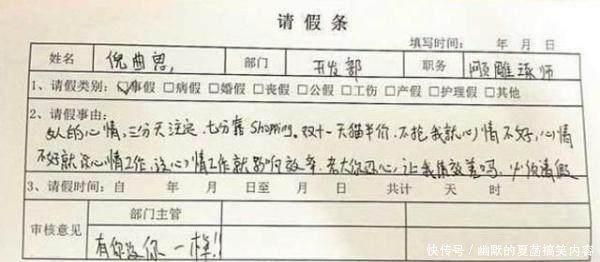 请假条
填写时间： 年 月 日
姓名 倪曲恩, 部门 开发部, 职务 顺雕琢师
1、请假类别：☑事假 □病假 □婚假 □丧假 □公假 □工伤 □产假 □护理假 □其他
2、请假事由：
女人的心情，三分天注定，七分靠shopping。双十一天猫半价，不抢我就心情不好，心情
不好就没心情工作，没心情工作就影响效率，老大你忍心，让我绩效差吗，必须请假
3、请假时间：自 年 月 日至 月 日 共计 天 时
审核意见 部门主管
有你没你一样!!
快传号／幽默的夏菡搞笑内容